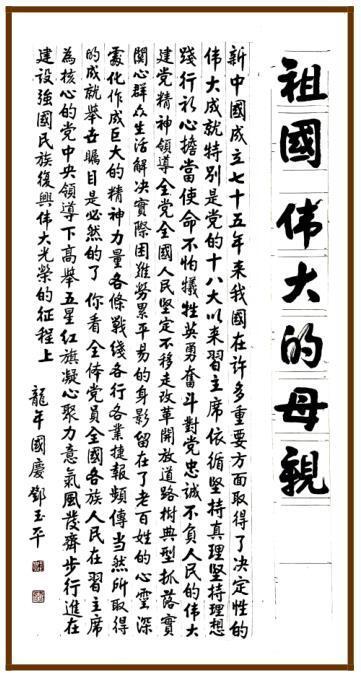 祖國偉大的母親
新中國成立七十五年来我國在许多重要方面取得了决定性的
伟大成就特别是党的十八大以来習主席依循堅持真理堅持理想
践行初心擔當使命不怕犧牲英勇奮斗對党忠诚不负人民的伟大
建党精神領導全党全國人民堅定不移走改革開放道路樹典型抓落實
関心群众生活解决實際困難勞累平易的身影留在了老百姓的心靈深
處化作成巨大的精神力量各條戰线各行各業捷報頻傳当然所取得
的成就舉世矚目是必然的了你看全体党員全國各族人民在習主席
為核心的党中央領導下高舉五星红旗凝心聚力意氣風發齊步行進在
建设強國民族復興偉大光榮的征程上
龍年國慶鄧玉平